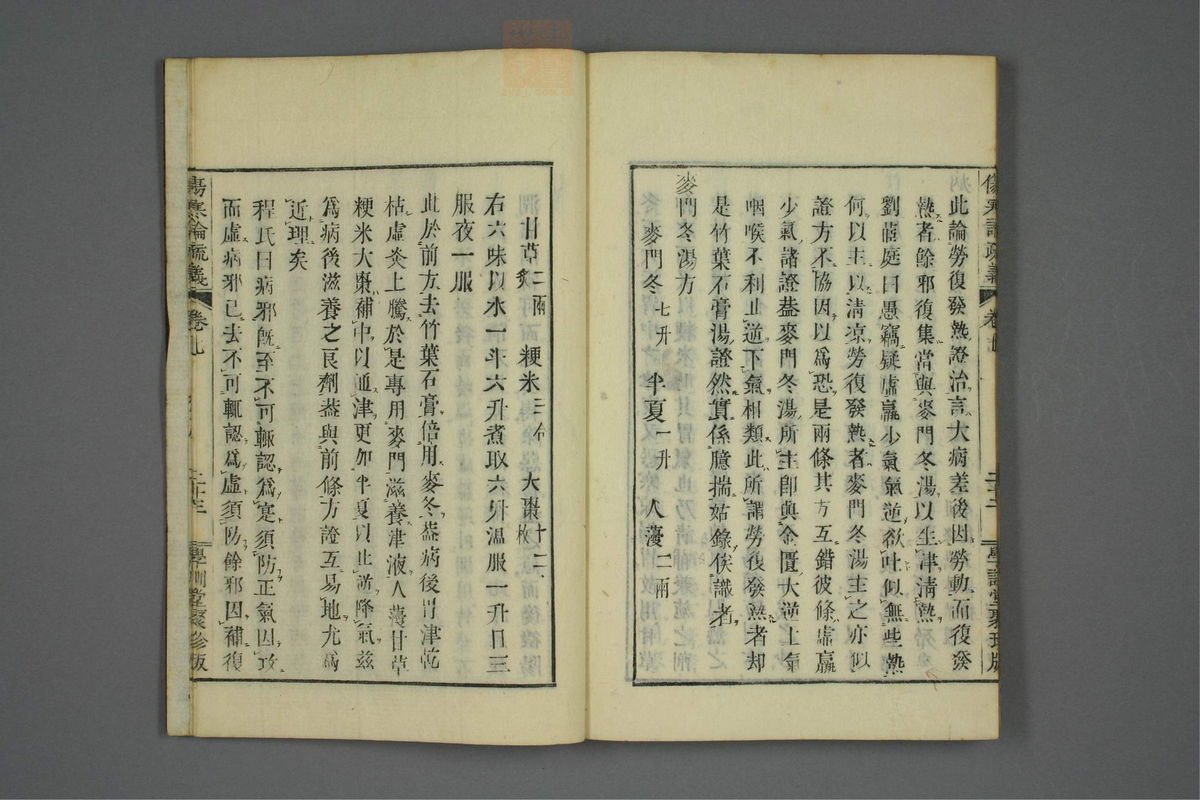 此論勞復發熱證治言大病差後因勞動而復發
熱者餘邪復集當與麥門冬湯以生津清熱
劉茝庭曰愚竊疑虛羸少氣氣逆欲吐似無些熱
何以主以清凉勞復發熱者麥門冬湯主之亦似
證方不協因以爲恐是兩條其方互錯彼條虛羸
少氣諸證葢麥門冬湯所主卽與金匱大逆上氣
咽喉不利止逆下氣相類此所謂勞復發熱者却
是竹葉石膏湯證然實係臆揣姑錄俟識者
麥門冬湯方
麥門冬七升 半夏一升 人薓二兩
甘草二兩炙 粳米三合 大棗十二枚
右六味以水一斗六升煮取六升温服一升日三
服夜一服
此於前方去竹葉石膏倍用麥冬葢病後胃津乾
枯虛炎上騰於是專用麥門滋養津液人薓甘草
粳米大棗補中以通津更加半夏以止逆降氣茲
爲病後滋養之良劑葢與前條方證互易地尤爲
近理矣
程氏曰病邪旣至不可輒認爲寔須防正氣因攻
而虛病邪已去不可輒認爲虛須防餘邪因補復
傷寒論疏義
卷七
學訓堂聚珍版